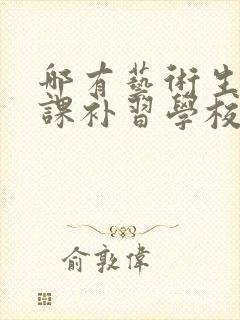 哪有藝術生
課补習學校
俞敦偉